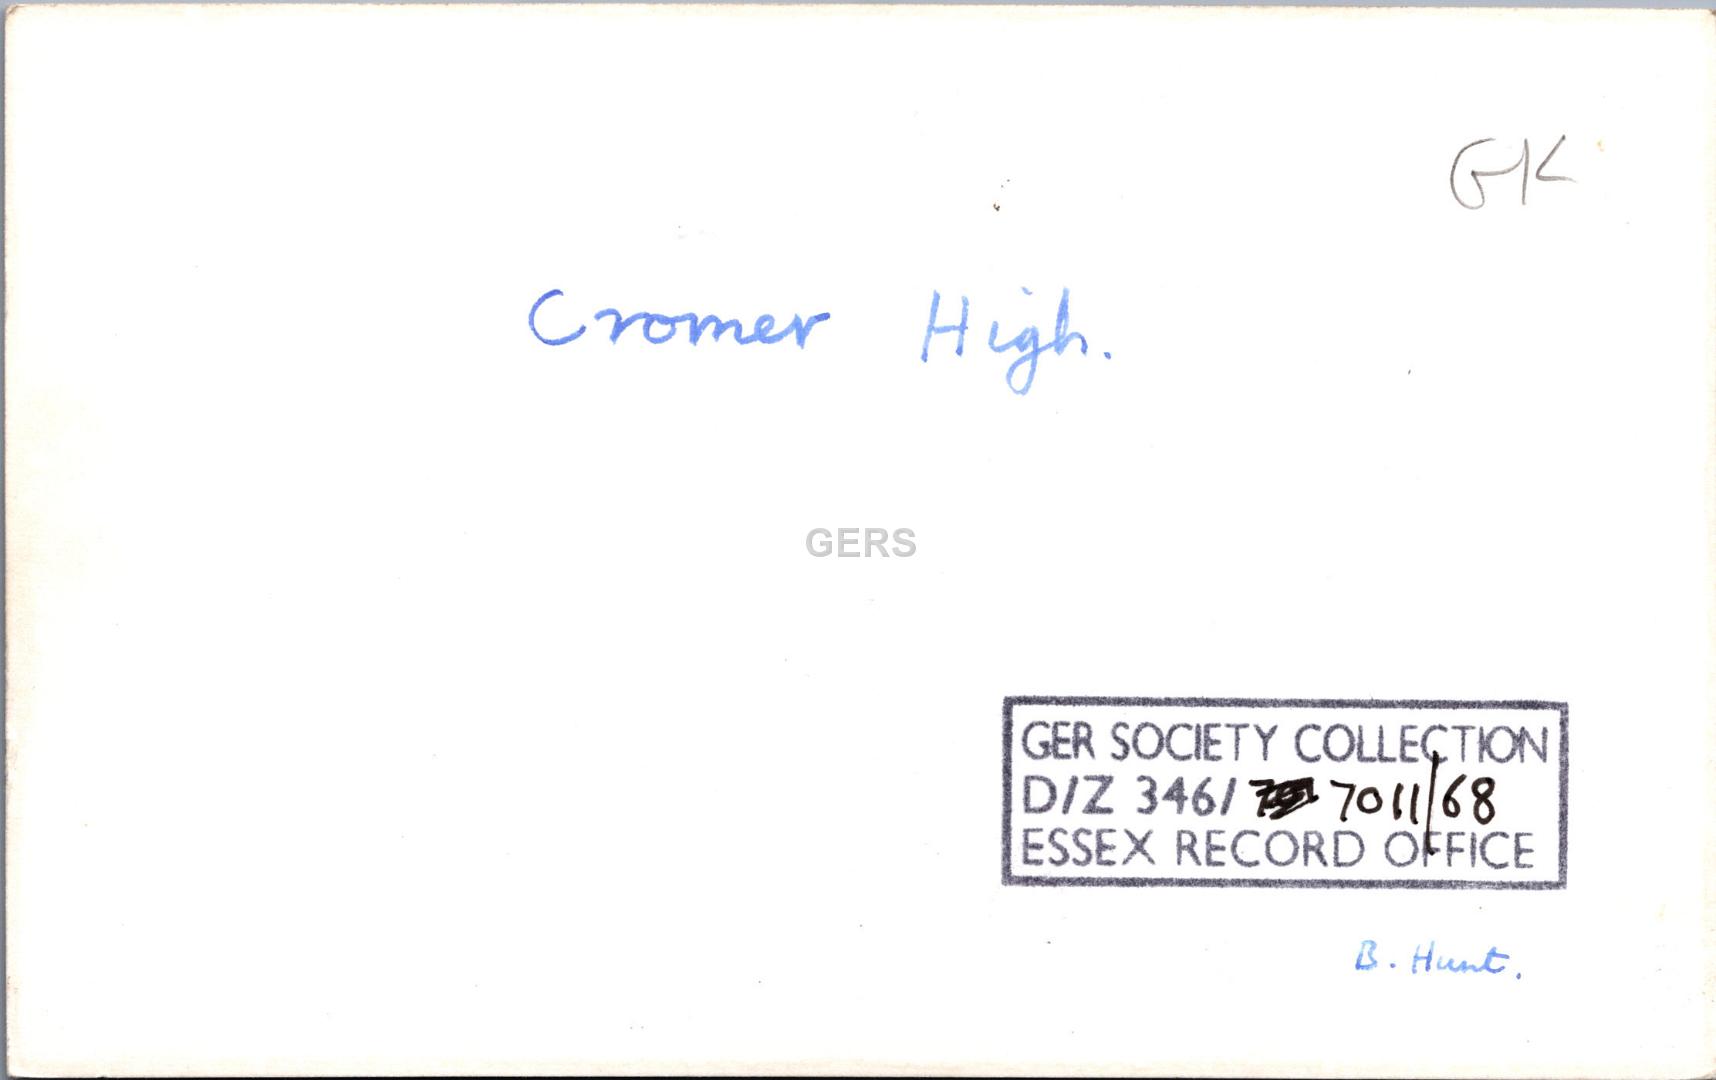 GK
Cromer High.
GERS
GER SOCIETY COLLECTION
D/Z 346/ 7011/68
ESSEX RECORD OFFICE
B. Hunt.